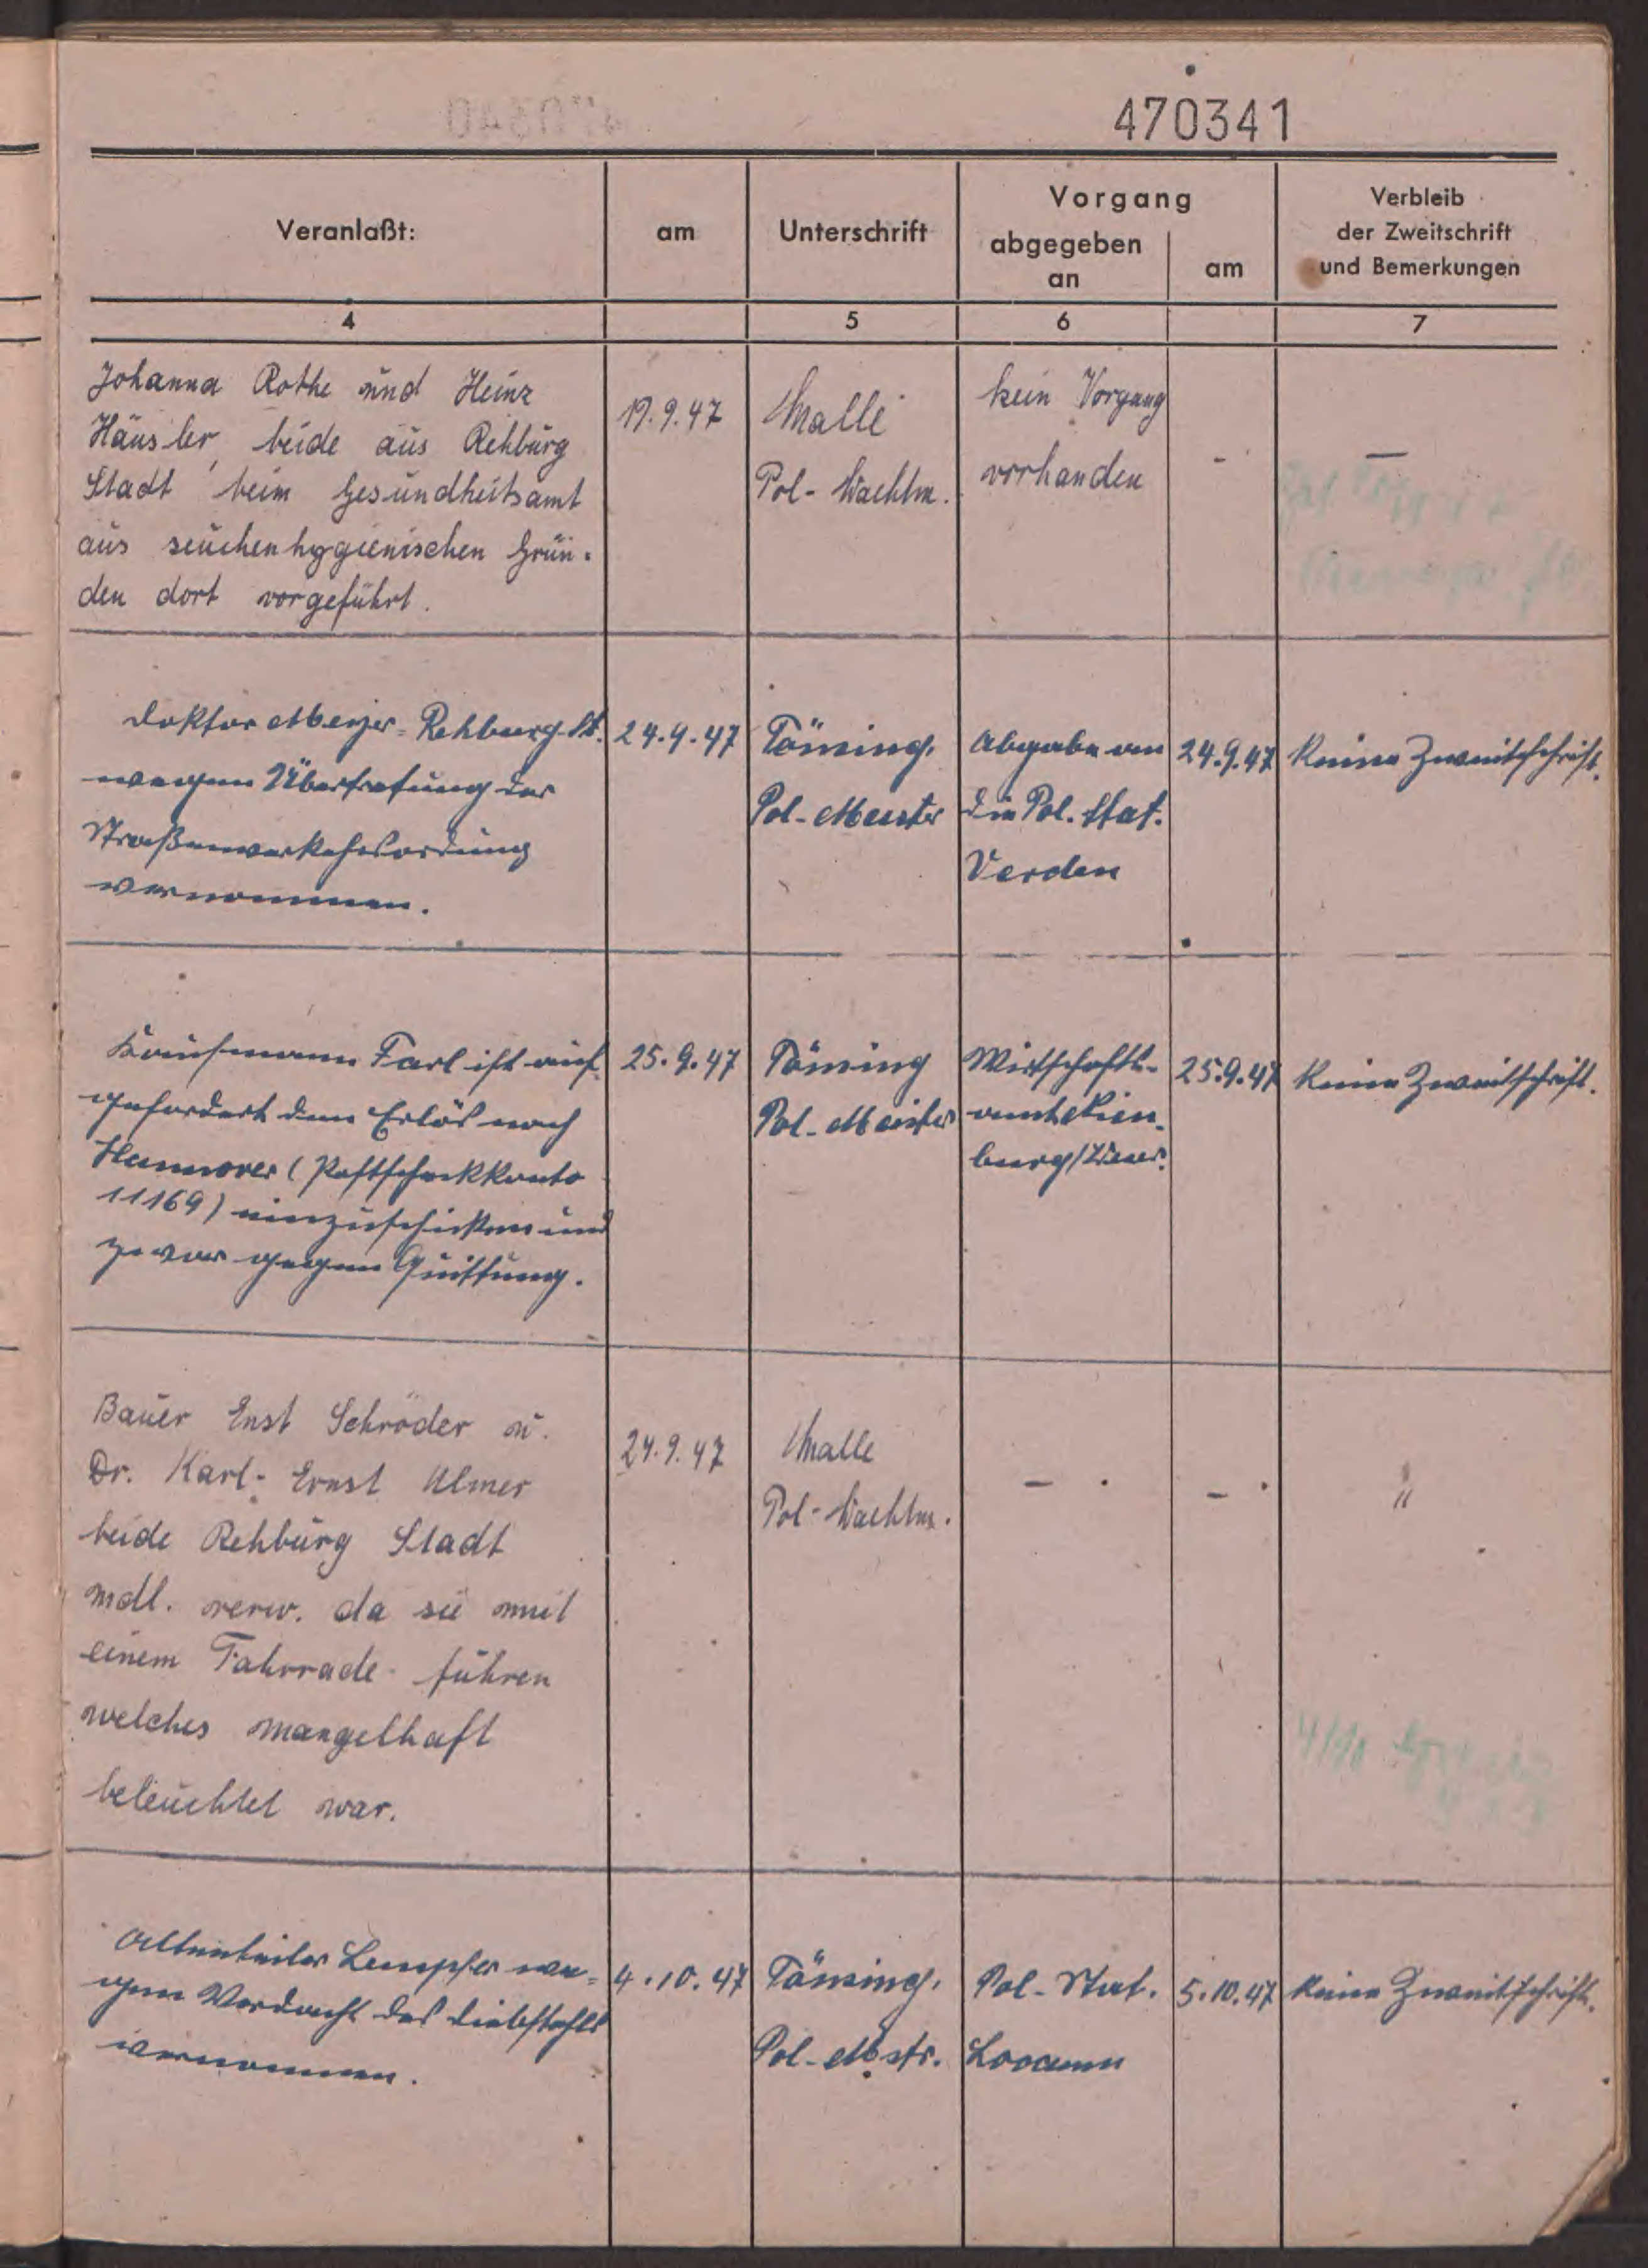 470341
Veranlaßt:
am
Unterschrift
Vorgang
abgegeben
an
am
Verbleib
der Zweitschrift
und Bemerkungen
4
5
6
7
Johanna Rothe und Heinz
Häusler, beide aus Rehburg
Stadt beim Gesundheitsamt
aus seuchenhygienischen Grün-
den dort vorgeführt.
19.9.47
Malle
Pol-Wachtm.
kein Vorgang
vorhanden
-
—
Doktor Meyer-Rehburg-St.
wegen Übertretung der
Straßenverkehrsordnung
vernommen.
24.9.47
Tönsing,
Pol-Meister
Abgabe an
die Pol. Stat.
Verden
24.9.47
Keine Zweitschrift.
Kaufmann Farl ist auf-
gefordert den Erlös nach
Hannover (Postscheckkonto
11169) einzuschicken und
zwar gegen Quittung.
25.9.47
Tönsing
Pol-Meister
Wirtschafts-
amt Nien-
burg/Weser.
25.9.47
Keine Zweitschrift.
Bauer Enst Schröder u.
Dr. Karl-Ernst Ulmer
beide Rehburg Stadt
mdl. verw. da sie mit
einem Fahrrade führen
welches mangelhaft
beleuchtet war.
24.9.47
Malle
Pol-Wachtm.
-
-
"
Altenteiler Lempfer we-
gen Verdacht des Diebstahls
vernommen.
4.10.47
Tönsing,
Pol-Mstr.
Pol-Stat.
Loccum
5.10.47
Keine Zweitschrift.